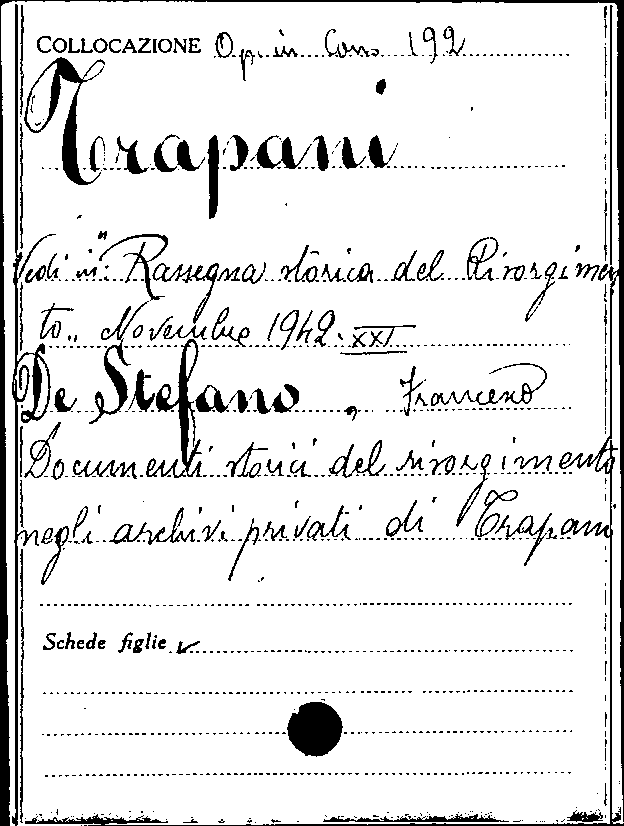 COLLOCAZIONE Op. in Cons 192
Trapani
Vedi in": Rassegna storica del Risorgimen
to„ Novembre 1942. XXI
De Stefano, Francesco
Documenti storici del risorgimento
negli archivi privati di Trapani
Schede figlie ✓